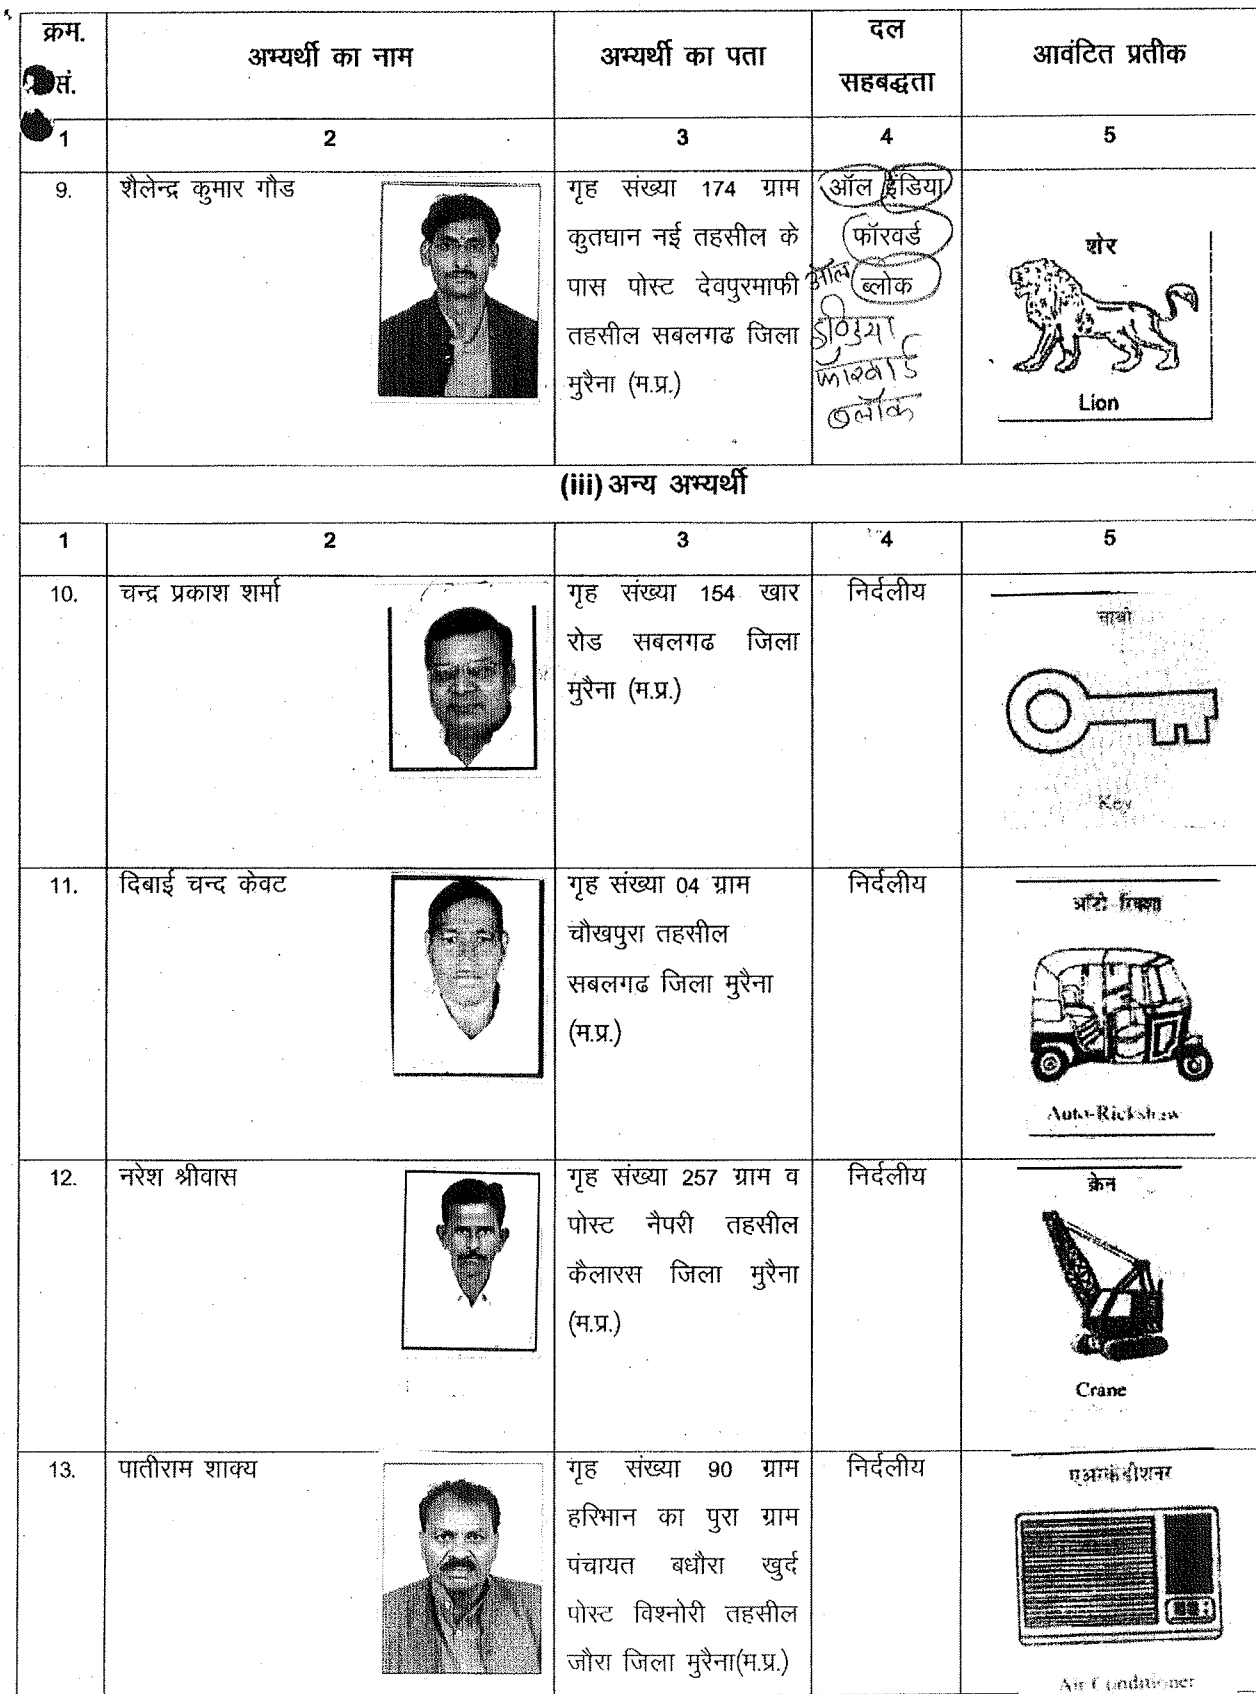 क्रम. सं.
अभ्यर्थी का नाम
अभ्यर्थी का पता
दल सहबद्धता
आवंटित प्रतीक
1 2 3 4 5
9. शैलेन्द्र कुमार गौड
गृह संख्या 174 ग्राम
कुतघान नई तहसील के
पास पोस्ट देवपुरमाफी
तहसील सबलगढ जिला
मुरैना (म.प्र.)
ऑल इंडिया
फॉरवर्ड
ब्लोक
ऑल
इण्डिया
फॉरवार्ड
ब्लॉक
शेर
Lion
(iii) अन्य अभ्यर्थी
1 2 3 4 5
10. चन्द्र प्रकाश शर्मा
गृह संख्या 154 खार
रोड सबलगढ जिला
मुरैना (म.प्र.)
निर्दलीय
चाबी
Key
11. दिबाई चन्द केवट
गृह संख्या 04 ग्राम
चौखपुरा तहसील
सबलगढ जिला मुरैना
(म.प्र.)
निर्दलीय
ऑटो रिक्शा
Auto-Rickshaw
12. नरेश श्रीवास
गृह संख्या 257 ग्राम व
पोस्ट नैपरी तहसील
कैलारस जिला मुरैना
(म.प्र.)
निर्दलीय
क्रेन
Crane
13. पातीराम शाक्य
गृह संख्या 90 ग्राम
हरिभान का पुरा ग्राम
पंचायत बधौरा खुर्द
पोस्ट विश्नोरी तहसील
जौरा जिला मुरैना(म.प्र.)
निर्दलीय
एअरकंडीशनर
Air Conditioner